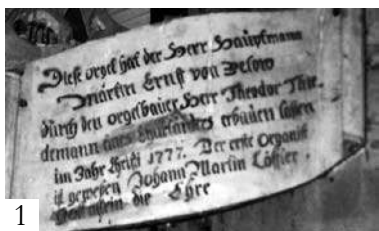 Diese orgel hat der Herr Hauptmann
Martin Ernst von Below
durch den orgelbauer Herr Theodor Thie-
demann erbauen lassen
im Jahr Christi 1777. Der erste Organist
ist gewesen Johann Martin Löffler.
Gott allein die Ehre
1